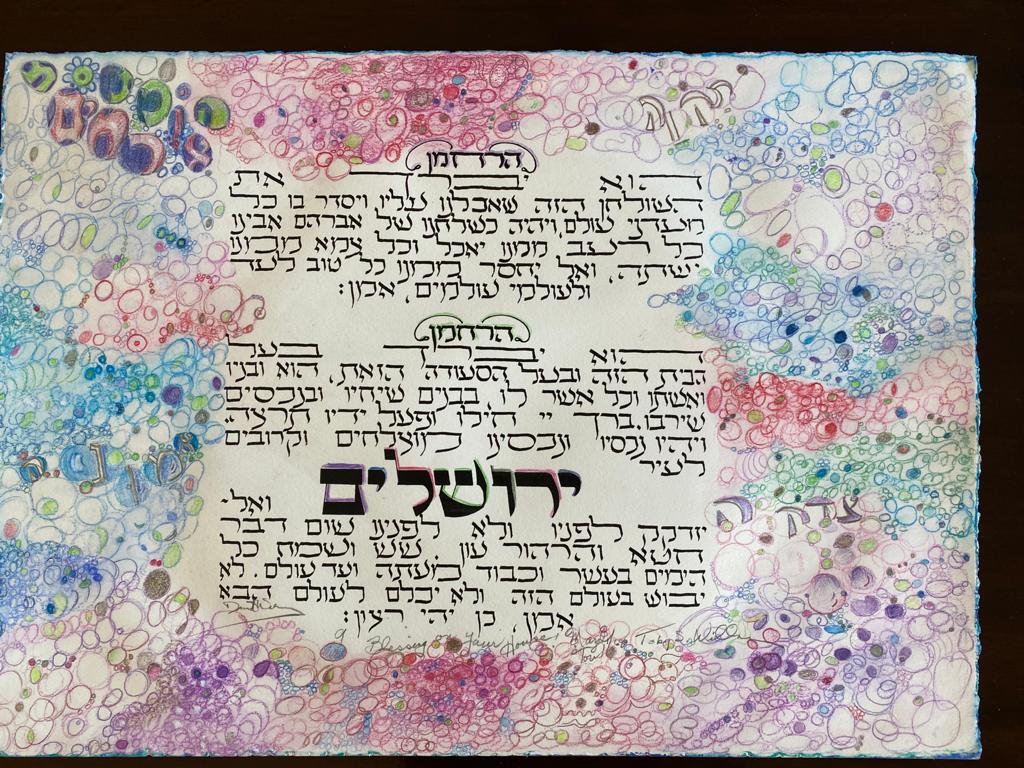 הכנסת
אורחים
הרחמן
הוא יברך את
השולחן הזה שאכלנו עליו, ויסדר בו כל
מעדני עולם, ויהיה כשלחנו של אברהם אבינו
כל רעב ממנו יאכל וכל צמא ממנו
ישתה, ואל יחסר ממנו כל טוב לעד
ולעולמי עולמים, אמן:
הרחמן
הוא יברך בעל
הבית הזה ובעל הסעודה הזאת, הוא ובניו
ואשתו וכל אשר לו בבנים שיחיו ובנכסים
שירבו. ברך יי חילו ופעל ידיו תרצה.
ויהיו נכסיו ונכסינו מוצלחים וקרובים
לעיר
אמונה
ירושלים
צדקה
ואל-
יזדקק לפניו ולא לפנינו שום דבר
חטא והרהור עון. שש ושמח כל
הימים בעשר וכבוד מעתה ועד עולם. לא
יבוש בעולם הזה ולא יכלם לעולם הבא
אמן, כן יהי רצון:
Blessing on Your House